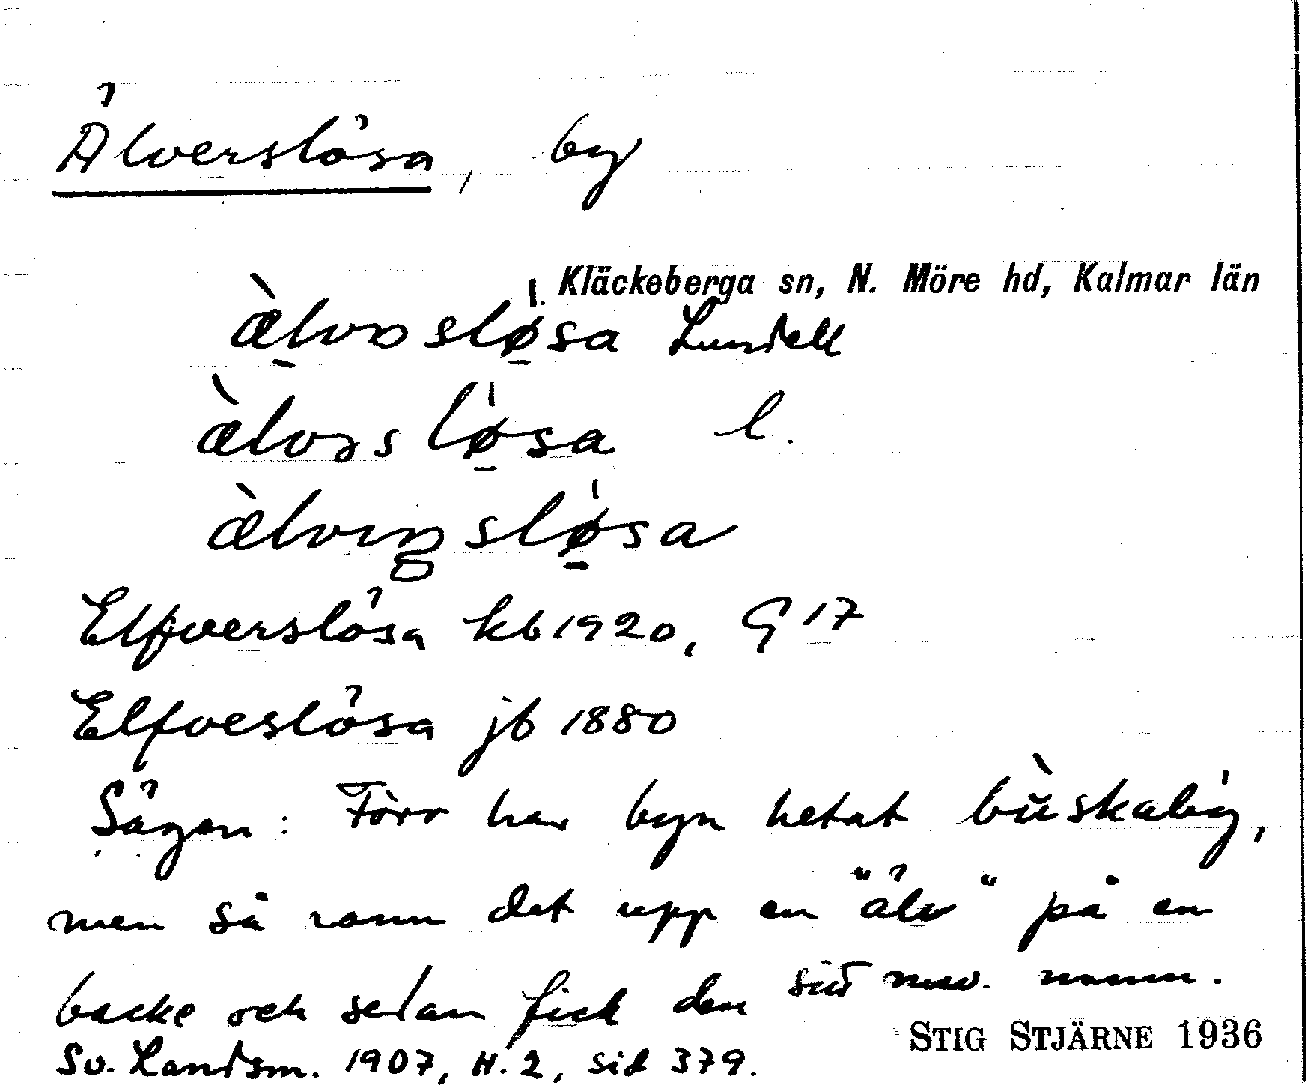 Älverslösa, by
Kläckeberga sn, N. Möre hd, Kalmar län
Lundell
l.
ælvıŋsløsa
Elfverslösa kb 1920, G 17
Elfveslösa jb 1880
Sägen: Förr har byn hetat büskabig,
men så rann det upp en "älv" på en
backe och sedan fick den sitt nuv. namn.
Sv. Landsm. 1907, H. 2, sid 379.
STIG STJÄRNE 1936